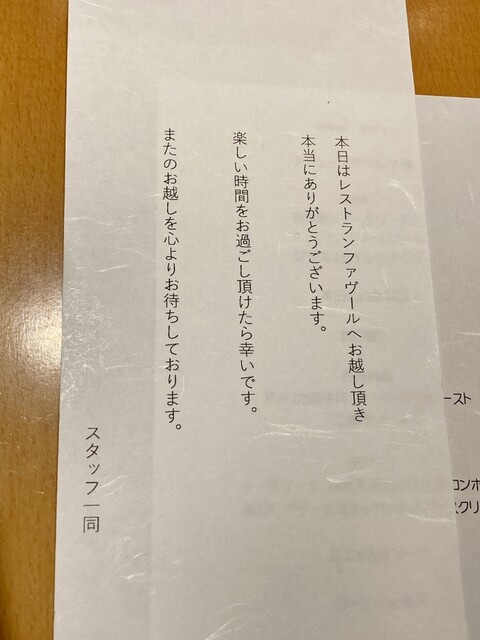 本日はレストランファヴールへお越し頂き
本当にありがとうございます。
楽しい時間をお過ごし頂けたら幸いです。
またのお越しを心よりお待ちしております。
スタッフ一同
ースト
コンポ
スクリ